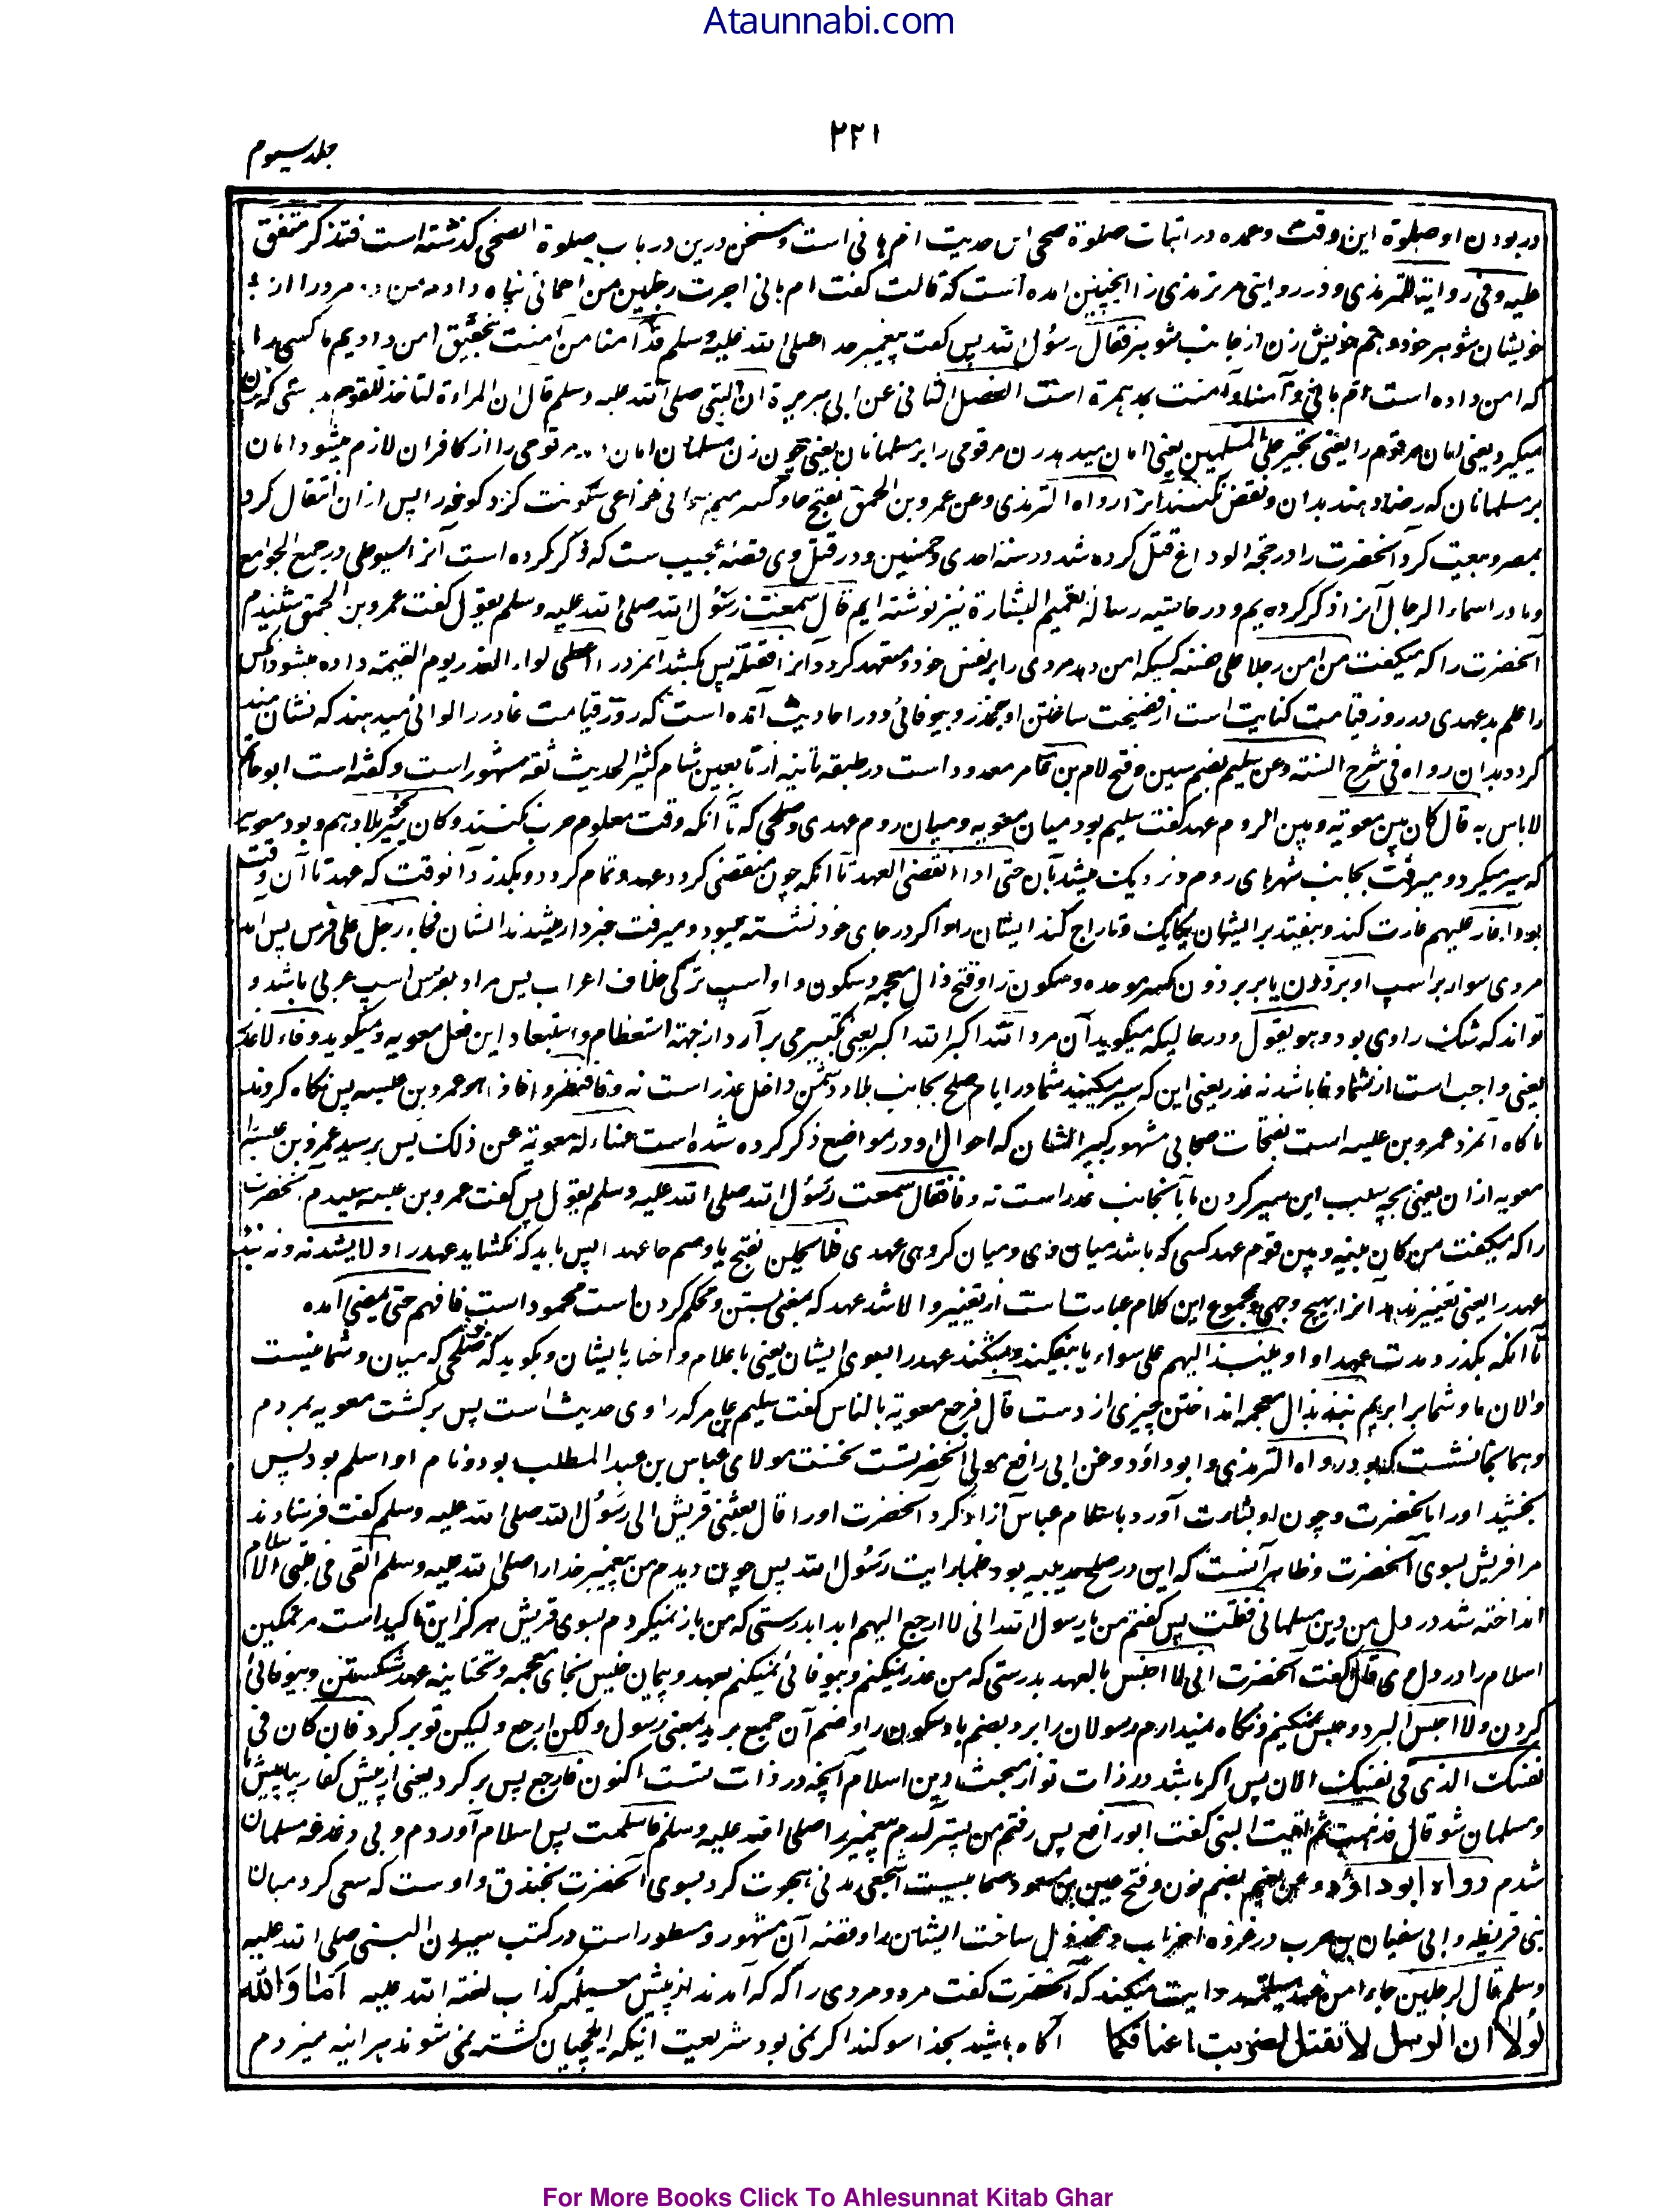 Ataunnabi.com
۲۲۱
جلد سیوم
در بودن او صلوة این وقت وعمده در اثبات صلوة ضحی این حدیث ام هانی است وسخن درین در باب صلوة الضحی گذشته است فتذکر متفق
علیه وفی روایة للترمذی ودر روایتی مر ترمذی را اینچنین آمده است که قالت گفت ام هانی اجرت رجلین من احمائی پناه داده‌ام من دو مرد را از
خویشان شوهر خود وحم خویش زن از جانب شوهر فقال رسول الله پس گفت پیغمبر خدا صلی الله علیه وسلم قد آمنا من آمنت بتحقیق امن دادیم ما کسی را
که امن داده است ام هانی وآمنا وآمنت بمد همزه است الفصل الثانی عن ابی هریرة ان النبی صلی الله علیه وسلم قال ان المراة لتاخذ للقوم بدرستی که زن
میگیرد یعنی امان مر قوم را یعنی تجیر علی المسلمین یعنی امان میدهد زن مر قومی را بر مسلمانان یعنی چون زن مسلمان امان دهد مر قومی را از کافران لازم میشود امان
بر مسلمانان که رضا دهند بدان ونقض نکنند آنرا رواه الترمذی وعن عمرو بن الحمق بفتح حا وکسر میم خزاعی سکونت کرد کوفه را پس ازان انتقال کرد
بمصر وبیعت کرد آنحضرت را در حجة الوداع قتل کرده شد در سنه احدی وخمسین ودر قتل وی قصه عجیب ست که ذکر کرده است آنرا سیوطی در جمع الجوامع
وما در اسماء الرجال آنرا ذکر کرده‌یم ودر حاشیه رساله تعمیم البشارة نیز نوشته‌ایم قال سمعت رسول الله صلی الله علیه وسلم یقول گفت عمرو بن الحمق شنیدم
آنحضرت را که میگفت من امن رجلا علی نفسه کسیکه امن دهد مردی را بر نفس خود ومتعهد گردد آنرا فقتله پس بکشد آنمرد را اعطی لواء الغدر یوم القیمة داده میشود آنکس
را علم بدعهدی در روز قیامت کنایت است از فضیحت ساختن او بغدر وبیوفائی ودر احادیث آمده است که روز قیامت غادر را لوائی میدهند که نشان مند
گردد بدان رواه فی شرح السنة وعن سلیم بضم سین وفتح لام بن عامر معدود است در طبقه ثانیه از تابعین شام کثیر الحدیث ثقه مشهور است وگفته است ابو حاتم
لا باس به قال کان بین معویة وبین الروم عهد گفت سلیم بود میان معویه ومیان روم عهدی وصلحی که تا آنکه وقت معلوم حرب نکنند وکان یسیر نحو بلادهم وبود معویه
که سیر میکرد ومیرفت بجانب شهرهای روم ونزدیک میشد بآن حتی اذا انقضی العهد تا آنکه چون منقضی گردد عهد وتمام گردد وبگذرد آنوقت که عهد تا آن وقت
بود اغار علیهم غارت کند وبیفتد بر ایشان یکایک وتاراج کند ایشان را واگر در جای خود نشسته میبود ومیرفت خبردار میشدند ایشان فجاء رجل علی فرس پس آمد
مردی سوار بر اسپ او برذون یا بر برذون بکسر موحده وسکون را وفتح ذال معجمه وسکون واو اسپ ترکی خلاف اعراب پس مراد بفرس اسپ عربی باشد و
تواند که شک راوی بود وهو یقول ودر حالیکه میگوید آن مرد الله اکبر الله اکبر یعنی تکبیر می‌برآرد از جهة استعظام واستبعاد این فعل معویه ومیگوید وفاء لا غدر
یعنی واجب است از شما وفا باشد نه غدر یعنی این که سیر میکنید شما در ایام صلح بجانب بلاد دشمن داخل غدر است نه وفا فنظروا فاذا هو عمرو بن عبسه پس نگاه کردند
ناگاه آنمرد عمرو بن عبسه است بفتحات صحابی مشهور کبیر الشان که احوال او در مواضع ذکر کرده شده است فساله معویة عن ذلک پس پرسید عمرو بن عبسه را
معویه ازان یعنی بچه سبب این سیر کردن ما بآنجانب غدر است نه وفا فقال سمعت رسول الله صلی الله علیه وسلم یقول پس گفت عمرو بن عبسه شنیدم آنحضرت
را که میگفت من کان بینه وبین قوم عهد کسی که باشد میان وی ومیان گروهی عهدی فلا یحلن بفتح یا وضم حا عهدا پس باید که نکشاید عهد را ولا یشدنه ونه بندد
عهد را یعنی تغییر ندهد آنرا بهیچ وجهی ومجموع این کلام عبارت است از تغییر والا شد عهد که بمعنی بستن ومحکم کردن است محمود است فافهم حتی یمضی امده
تا آنکه بگذرد مدت عهد او او ینبذ الیهم علی سواء یا بیفکند وبشکند عهد را بسوی ایشان یعنی باعلام واخبار بایشان وبگوید که صلحی که میان ما وشما نیست
والان ما وشما برابریم نبذ بذال معجمه انداختن چیزی از دست قال فرجع معویة بالناس گفت سلیم بن عامر که راوی حدیث است پس برگشت معویه بمردم
وبهمانجا نشست که بود رواه الترمذی وابو داؤد وعن ابی رافع مولی آنحضرتست نخست مولای عباس بن عبد المطلب بود ونام او اسلم بود پس
بخشید او را بآنحضرت وچون او بشارت آورد باسلام عباس آزاد کرد آنحضرت او را قال بعثنی قریش الی رسول الله صلی الله علیه وسلم گفت فرستادند
مرا قریش بسوی آنحضرت وظاهر آنست که این در صلح حدیبیه بود فلما رایت رسول الله پس چون دیدم من پیغمبر خدا را صلی الله علیه وسلم القی فی قلبی الاسلام
انداخته شد در دل من دین مسلمانی فقلت پس گفتم من یا رسول الله انی لا ارجع الیهم ابدا بدرستی که من باز نمیگردم بسوی قریش هرگز این تاکید است مر تمکین
اسلام را در دل وی قال گفت آنحضرت انی لا اخیس بالعهد بدرستی که من غدر نمیکنم وبیوفائی نمیکنم بعهد وپیمان خیس بخای معجمه وتحتانیه عهد شکستن وبیوفائی
کردن ولا احبس البرد وحبس نمیکنم ونگاه نمیدارم رسولان را برد بضم با وسکون را وضم آن جمع برید بمعنی رسول ولکن ارجع ولیکن تو برگرد فان کان فی
نفسک الذی فی نفسک الان پس اگر باشد در ذات تو از محبت دین اسلام آنچه در ذات تست اکنون فارجع پس برگرد یعنی از پیش کفار بیا پیش ما
ومسلمان شو قال فذهبت ثم اتیت النبی گفت ابو رافع پس رفتم من پستر آمدم پیغمبر را صلی الله علیه وسلم فاسلمت پس اسلام آوردم وبی دغدغه مسلمان
شدم رواه ابو داؤد وعن نعیم بضم نون وفتح عین بن مسعود صحابیست اشجعی مدنی هجرت کرد بسوی آنحضرت بخندق واوست که سعی کرد میان
بنی قریظه وابی سفیان بن حرب در غزوه احزاب ومخذول ساخت ایشان را وقصه آن مشهور ومسطور است در کتب سیر ان النبی صلی الله علیه
وسلم قال لرجلین جاءا من عند مسیلمة روایت میکند که آنحضرت گفت مر دو مردی را که که آمدند از پیش مسیلمه کذاب لعنة الله علیه اما والله
لولا ان الرسل لا تقتل لضربت اعناقکما آگاه باشید بخدا سوگند اگر نمی‌بود شریعت اینکه ایلچیان کشته نمی‌شوند هرآئینه میزدم
For More Books Click To Ahlesunnat Kitab Ghar